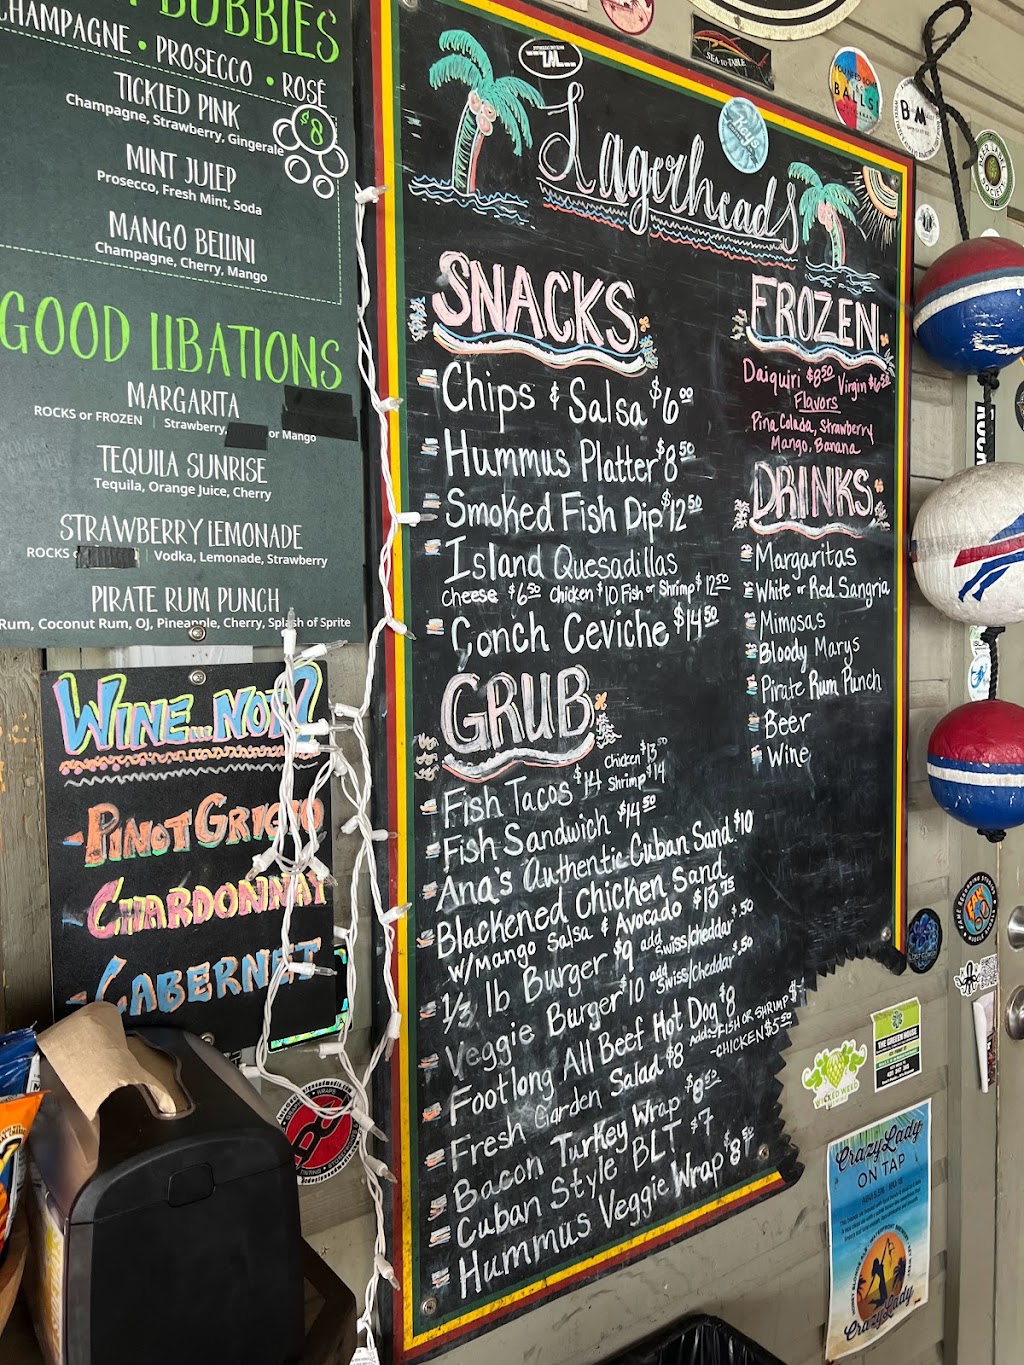 BUBBLES
CHAMPAGNE • PROSECCO • ROSÉ
TICKLED PINK
Champagne, Strawberry, Gingerale
$8
MINT JULEP
Prosecco, Fresh Mint, Soda
MANGO BELLINI
Champagne, Cherry, Mango
GOOD LIBATIONS
MARGARITA
ROCKS or FROZEN | Strawberry, or Mango
TEQUILA SUNRISE
Tequila, Orange Juice, Cherry
STRAWBERRY LEMONADE
ROCKS | Vodka, Lemonade, Strawberry
PIRATE RUM PUNCH
Rum, Coconut Rum, OJ, Pineapple, Cherry, Splash of Sprite
WINE...NOT?
-PINOT GRIGIO
-CHARDONNAY
-CABERNET
Lagerheads
SNACKS
Chips & Salsa $6.00
Hummus Platter $8.50
Smoked Fish Dip $12.50
Island Quesadillas
Cheese $6.50 Chicken $10 Fish or Shrimp $12.50
Conch Ceviche $14.50
GRUB
Fish Tacos $14 Chicken $13.50
Shrimp $14
Fish Sandwich $14.50
Ana's Authentic Cuban Sand $10
Blackened Chicken Sand
w/Mango Salsa & Avocado $13.75
1/3 lb Burger $9 add Swiss/cheddar $.50
Veggie Burger $10 add Swiss/cheddar $.50
Footlong All Beef Hot Dog $8
Fresh Garden Salad $8 add: FISH OR SHRIMP
-CHICKEN $5.50
Bacon Turkey Wrap $8.50
Cuban Style BLT $7
Hummus Veggie Wrap $8.50
FROZEN
Daiquiri $8.50 Virgin $6.50
Flavors
Pina Colada, Strawberry
Mango, Banana
DRINKS
Margaritas
White or Red Sangria
Mimosas
Bloody Marys
Pirate Rum Punch
Beer
Wine
SEA TO TABLE
BALLS!
THE GREEN HOUSE
WICKED WEED
CrazyLady
ON TAP
CrazyLady